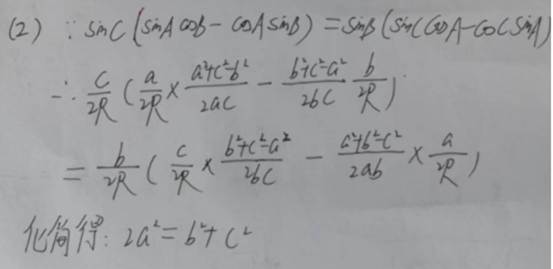 (2) ∵ sinC(sinA cosB - cosA sinB) = sinB(sinC cosA - cosC sinA)
∴ c/2R ( a/2R × (a²+c²-b²)/2ac - (b²+c²-a²)/2bc b/2R )
= b/2R ( c/2R × (b²+c²-a²)/2bc - (a²+b²-c²)/2ab × a/2R )
化简得: 2a² = b² + c²